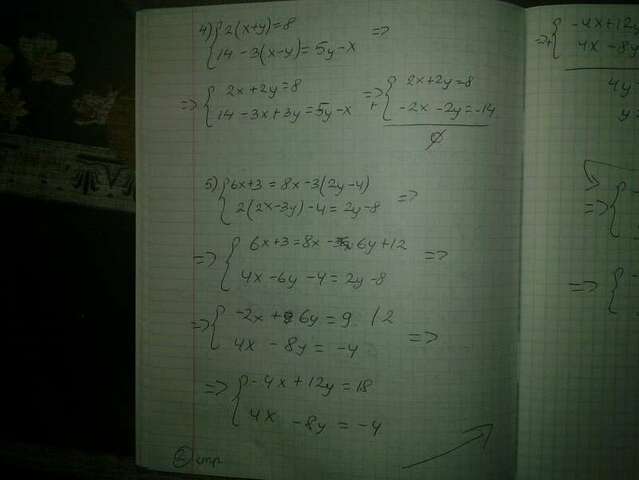 4) { 2(x+y)=8 =>
14-3(x-y)=5y-x
=> { 2x+2y=8 => + { 2x+2y=8
14-3x+3y=5y-x -2x-2y=-14
∅
5) { 6x+3=8x-3(2y-4) =>
2(2x-3y)-4=2y-8
=> { 6x+3=8x-6y+12 =>
4x-6y-4=2y-8
=> { -2x+6y=9 /2 =>
4x-8y=-4
=> { -4x+12y=18
4x-8y=-4
② стр
=> + { -4x+12y
4x-8y
4y
y=
=> {
=> {